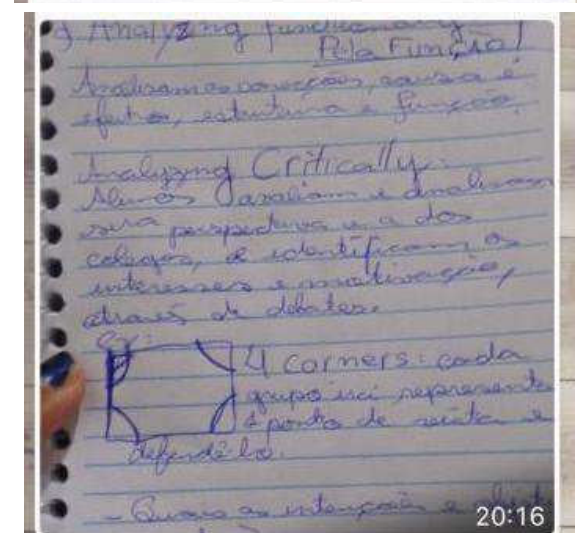 Analyzing functionally
Pela Função!
Analisamos conecções, causa e
efeitos, estrutura e função.
Analyzing Critically:
Alunos avaliam e analisam
sua perspectiva e a dos
colegas, e identificam os
interesses e motivação,
através de debates.
Ex:
4 corners: cada
grupo irá representar
1 ponto de vista e
defendê-lo.
- Quais as intenções e
20:16